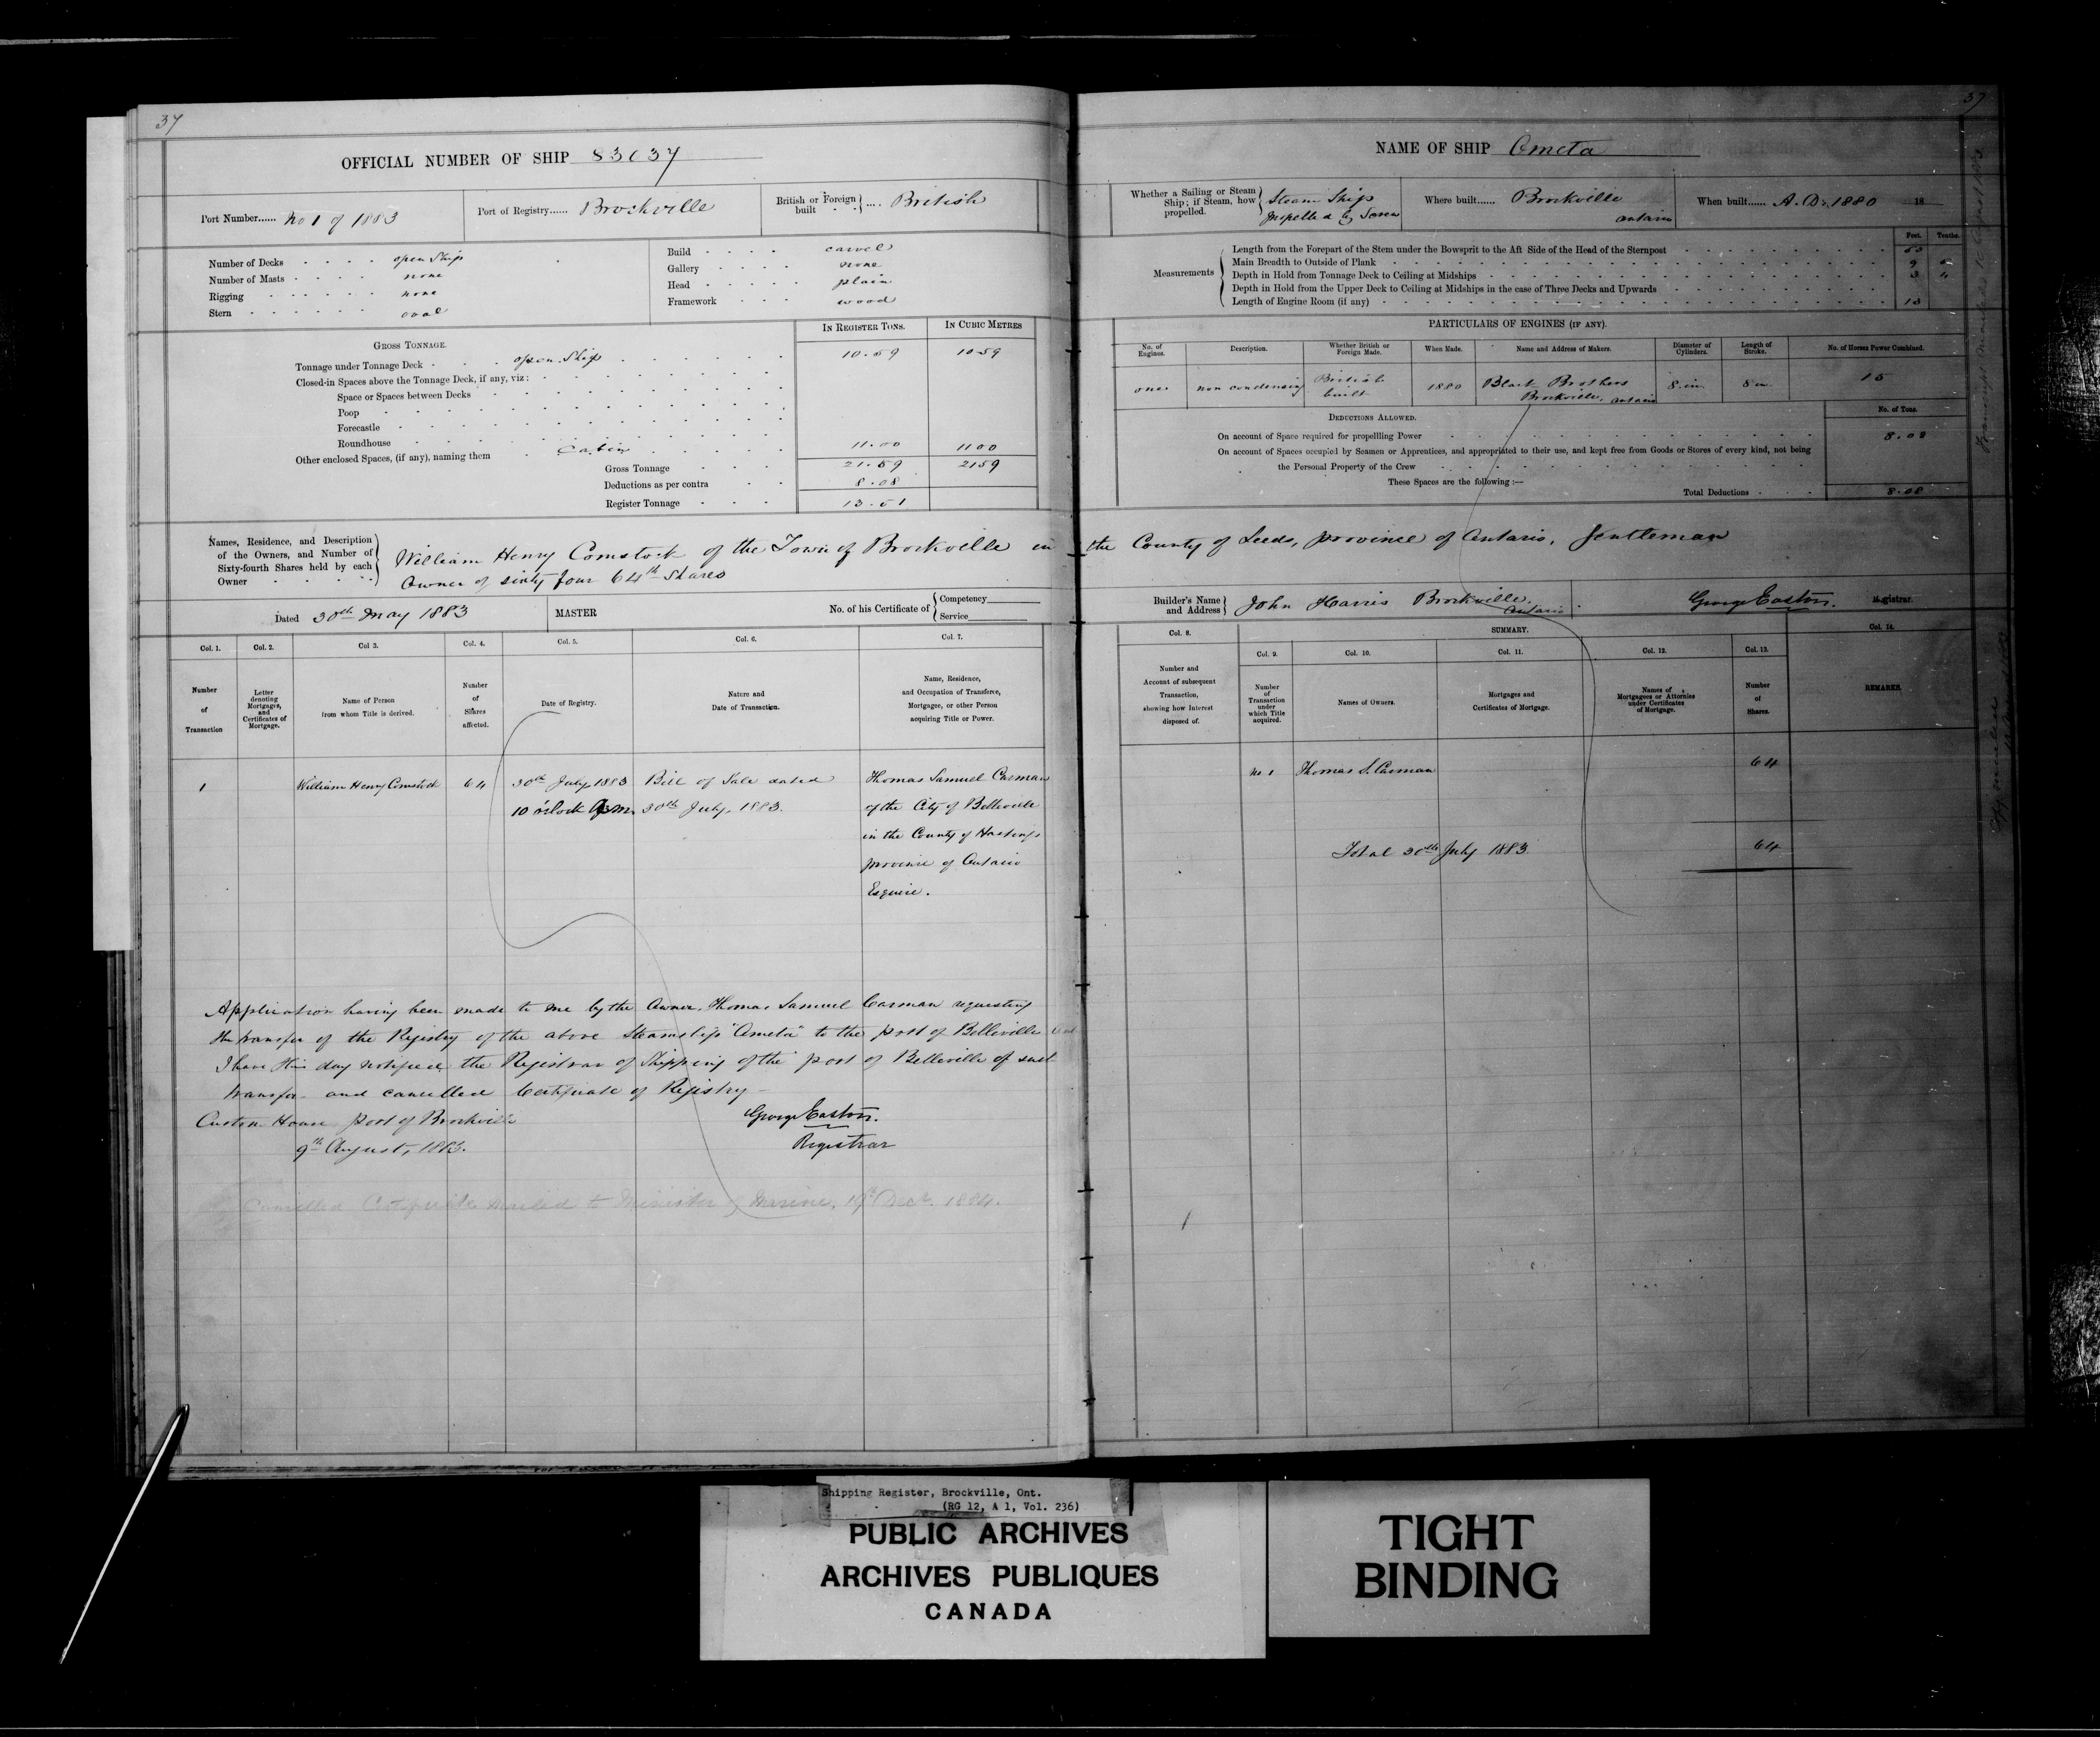 37
OFFICIAL NUMBER OF SHIP 83037
Port Number...... No 1 of 1883
Port of Registry...... Brockville
British or Foreign built .... British
Number of Decks open Ship
Number of Masts none
Rigging none
Stern oval
Build carvel
Gallery none
Head plain
Framework wood
IN REGISTER TONS. IN CUBIC METRES
GROSS TONNAGE.
Tonnage under Tonnage Deck open Ship 10.59 1059
Closed-in Spaces above the Tonnage Deck, if any, viz:
Space or Spaces between Decks
Poop
Forecastle
Roundhouse
Other enclosed Spaces, (if any), naming them Cabin 11.00 1100
Gross Tonnage 21.59 2159
Deductions as per contra 8.08
Register Tonnage 13.51
Names, Residence, and Description
of the Owners, and Number of
Sixty-fourth Shares held by each
Owner
William Henry Comstock of the Town of Brockville in
Owner of sixty four 64th Shares
Dated 30th May 1883
MASTER
No. of his Certificate of
Competency
Service
Col. 1. Col. 2. Col 3. Col. 4. Col. 5. Col. 6. Col. 7.
Number of Transaction
Letter denoting Mortgages, and Certificates of Mortgage.
Name of Person from whom Title is derived.
Number of Shares affected.
Date of Registry.
Nature and Date of Transaction.
Name, Residence, and Occupation of Transferee, Mortgagee, or other Person acquiring Title or Power.
1 William Henry Comstock 64 30th July 1883 Bill of Sale dated Thomas Samuel Carman
10 o'clock a.m. 30th July, 1883. of the City of Belleville
in the County of Hastings
province of Ontario
Esquire.
Application having been made to me by the Owner, Thomas Samuel Carman requesting
the transfer of the Registry of the above Steamship "Ometa" to the port of Belleville
I have this day notified the Registrar of Shipping of the port of Belleville of such
transfer and cancelled Certificate of Registry
Custom House port of Brockville
George Easton.
9th August, 1883.
Registrar
Cancelled Certificate mailed to Minister of Marine, 19th Dec. 1884.
37
NAME OF SHIP Ometa
Whether a Sailing or Steam
Ship; if Steam, how
propelled.
Steam Ship
propelled by Screw
Where built...... Brockville
Ontario
When built...... A.D. 1880 18
Measurements
Feet. Tenths.
Length from the Forepart of the Stem under the Bowsprit to the Aft Side of the Head of the Sternpost
Main Breadth to Outside of Plank 9
Depth in Hold from Tonnage Deck to Ceiling at Midships 3 "
Depth in Hold from the Upper Deck to Ceiling at Midships in the case of Three Decks and Upwards
Length of Engine Room (if any)
PARTICULARS OF ENGINES (IF ANY).
No. of Engines. Description. Whether British or Foreign Made. When Made. Name and Address of Makers. Diameter of Cylinders. Length of Stroke. No. of Horses Power Combined.
one non condensing British built 1880 Black Brothers 8 in 8 in 15
Brockville, Ontario
DEDUCTIONS ALLOWED. No. of Tons.
On account of Space required for propellling Power 8.08
On account of Spaces occupied by Seamen or Apprentices, and appropriated to their use, and kept free from Goods or Stores of every kind, not being
the Personal Property of the Crew
These Spaces are the following :—
Total Deductions 8.08
the County of Leeds, province of Ontario, Gentleman
Builder's Name and Address John Harris Brockville.
Ontario
George Easton. Registrar.
SUMMARY.
Col. 8. Col. 9. Col. 10. Col. 11. Col. 12. Col. 13. Col. 14.
Number and Account of subsequent Transaction, showing how Interest disposed of.
Number of Transaction under which Title acquired.
Names of Owners.
Mortgages and Certificates of Mortgage.
Names of Mortgagees or Attornies under Certificates of Mortgage.
Number of Shares.
REMARKS.
No 1 Thomas S. Carman 64
Total 30th July 1883 64
Shipping Register, Brockville, Ont.
(RG 12, A 1, Vol. 236)
PUBLIC ARCHIVES
ARCHIVES PUBLIQUES
CANADA
TIGHT
BINDING